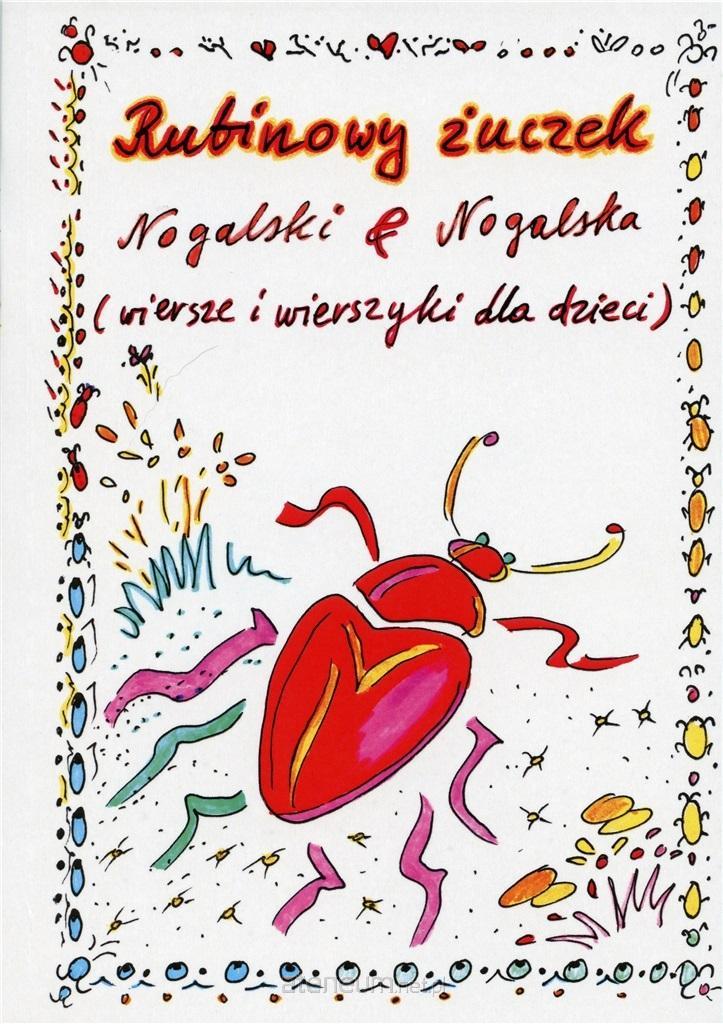 Rubinowy żuczek
Nogalski & Nogalska
(wiersze i wierszyki dla dzieci)
ateneum.net.pl